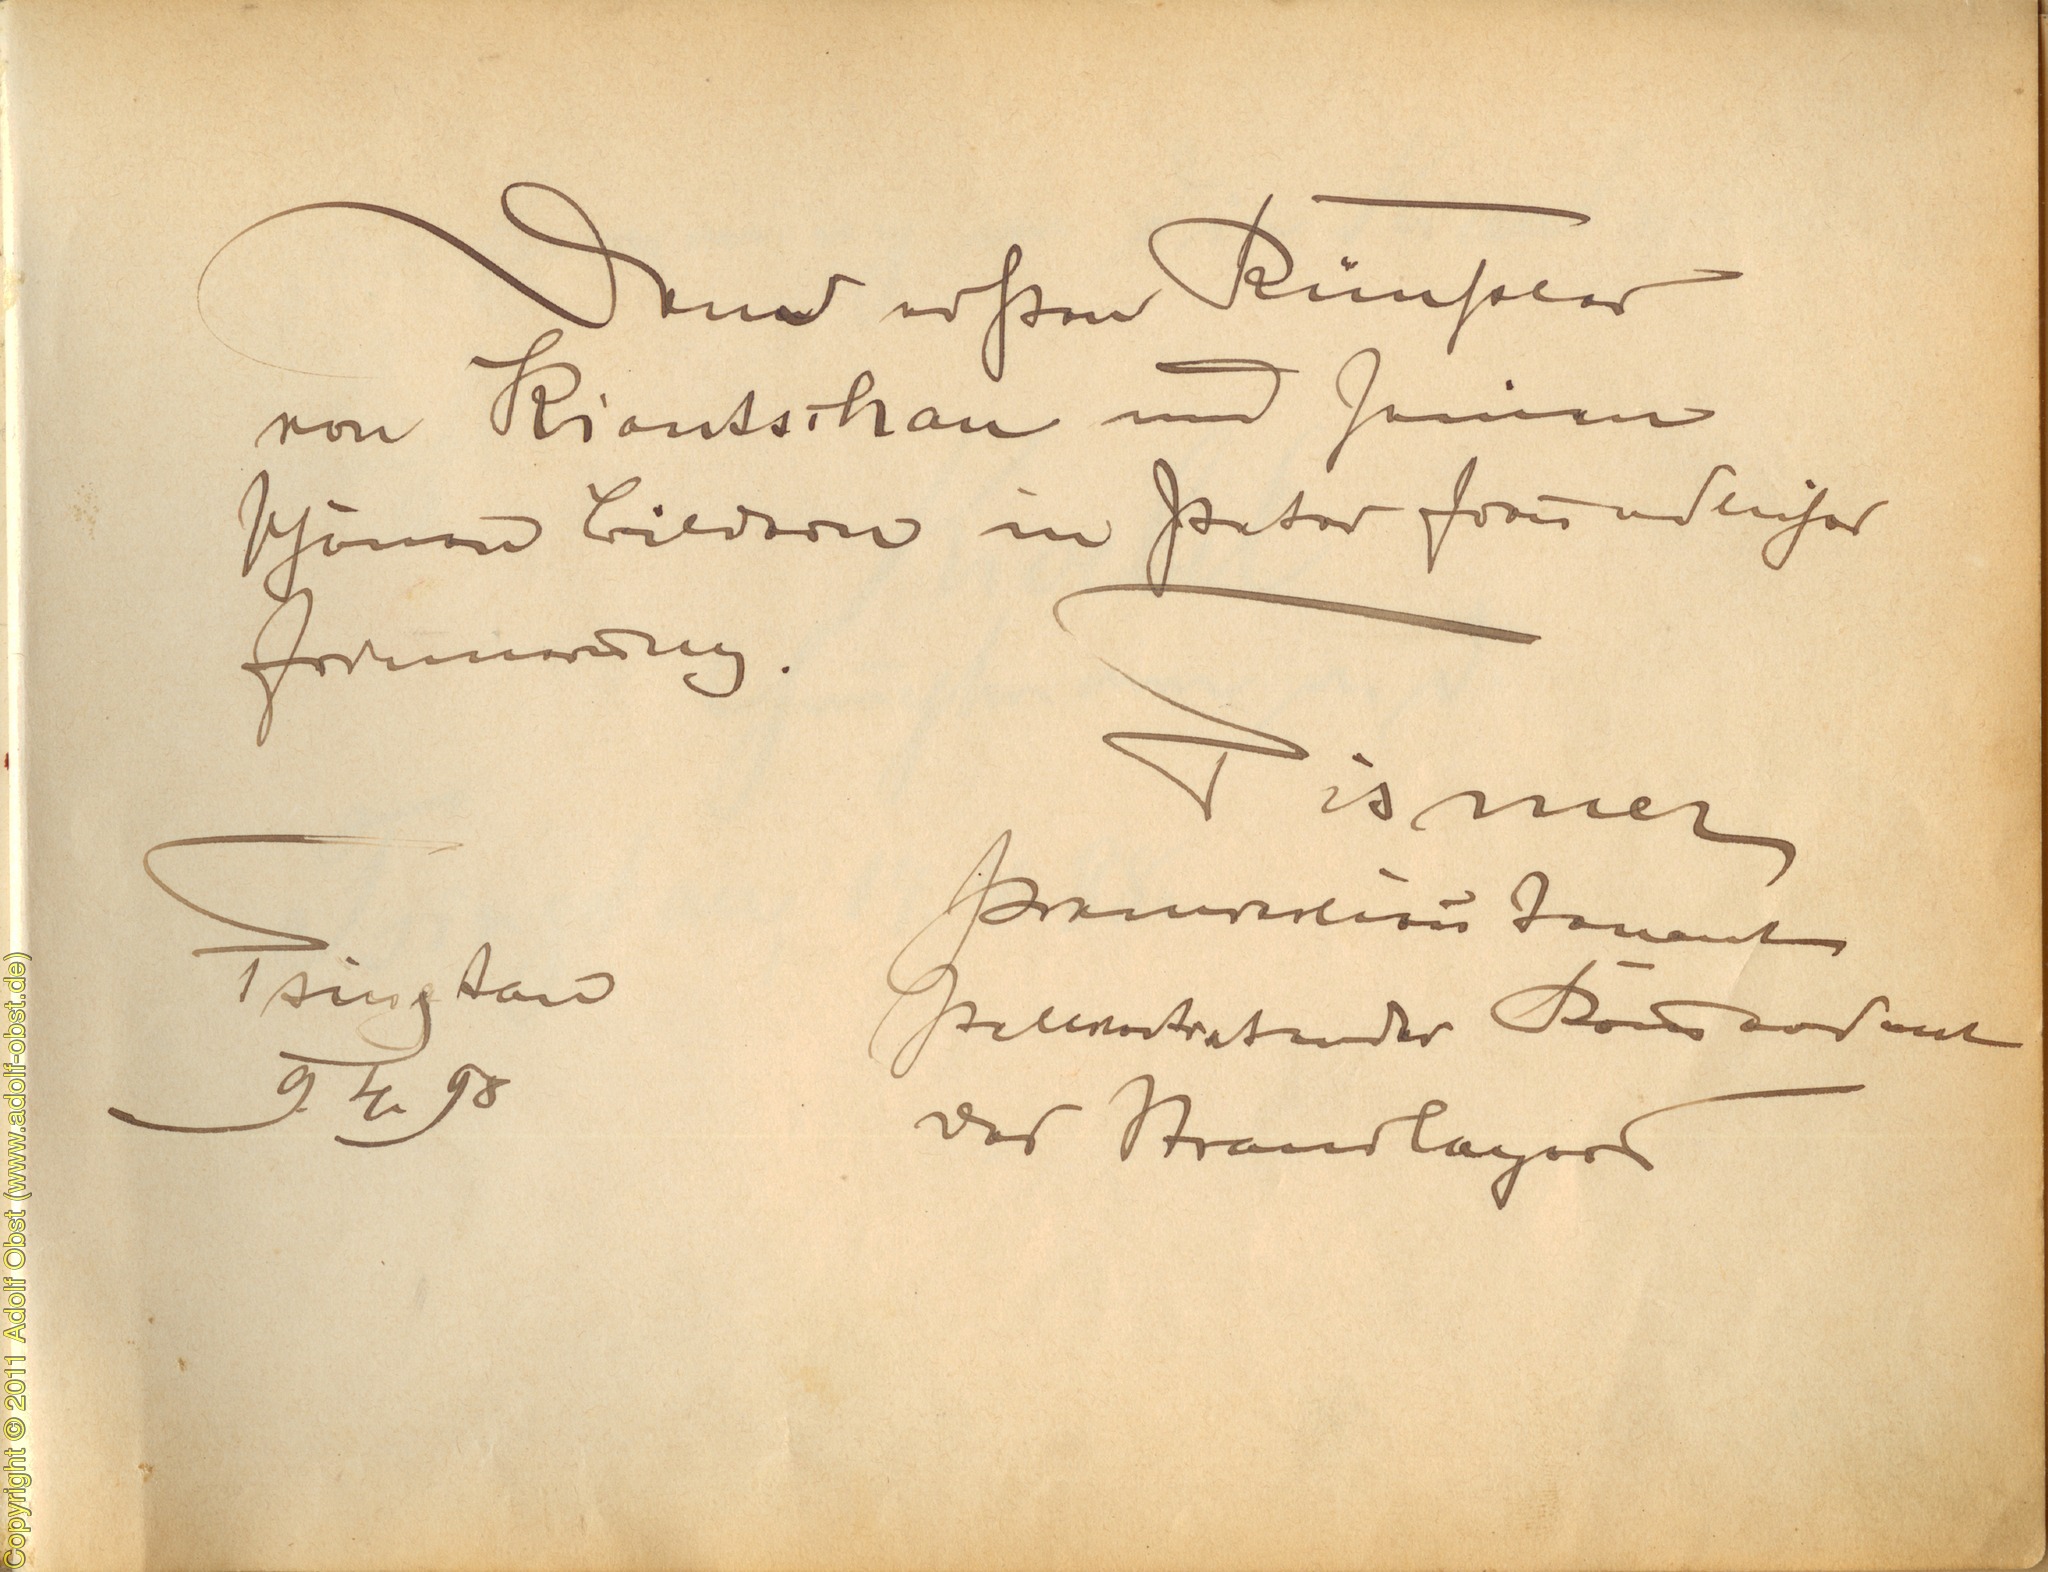 Dem ersten Künstler
von Kiautschau und seinen
schönen Bildern in steter freundlicher
Erinnerung.
Tismer
Premierlieutenant
stellvertretender Kom̄andant
des Strandlagers
Tsingtau
9. 4. 98
Copyright © 2011 Adolf Obst (www.adolf-obst.de)